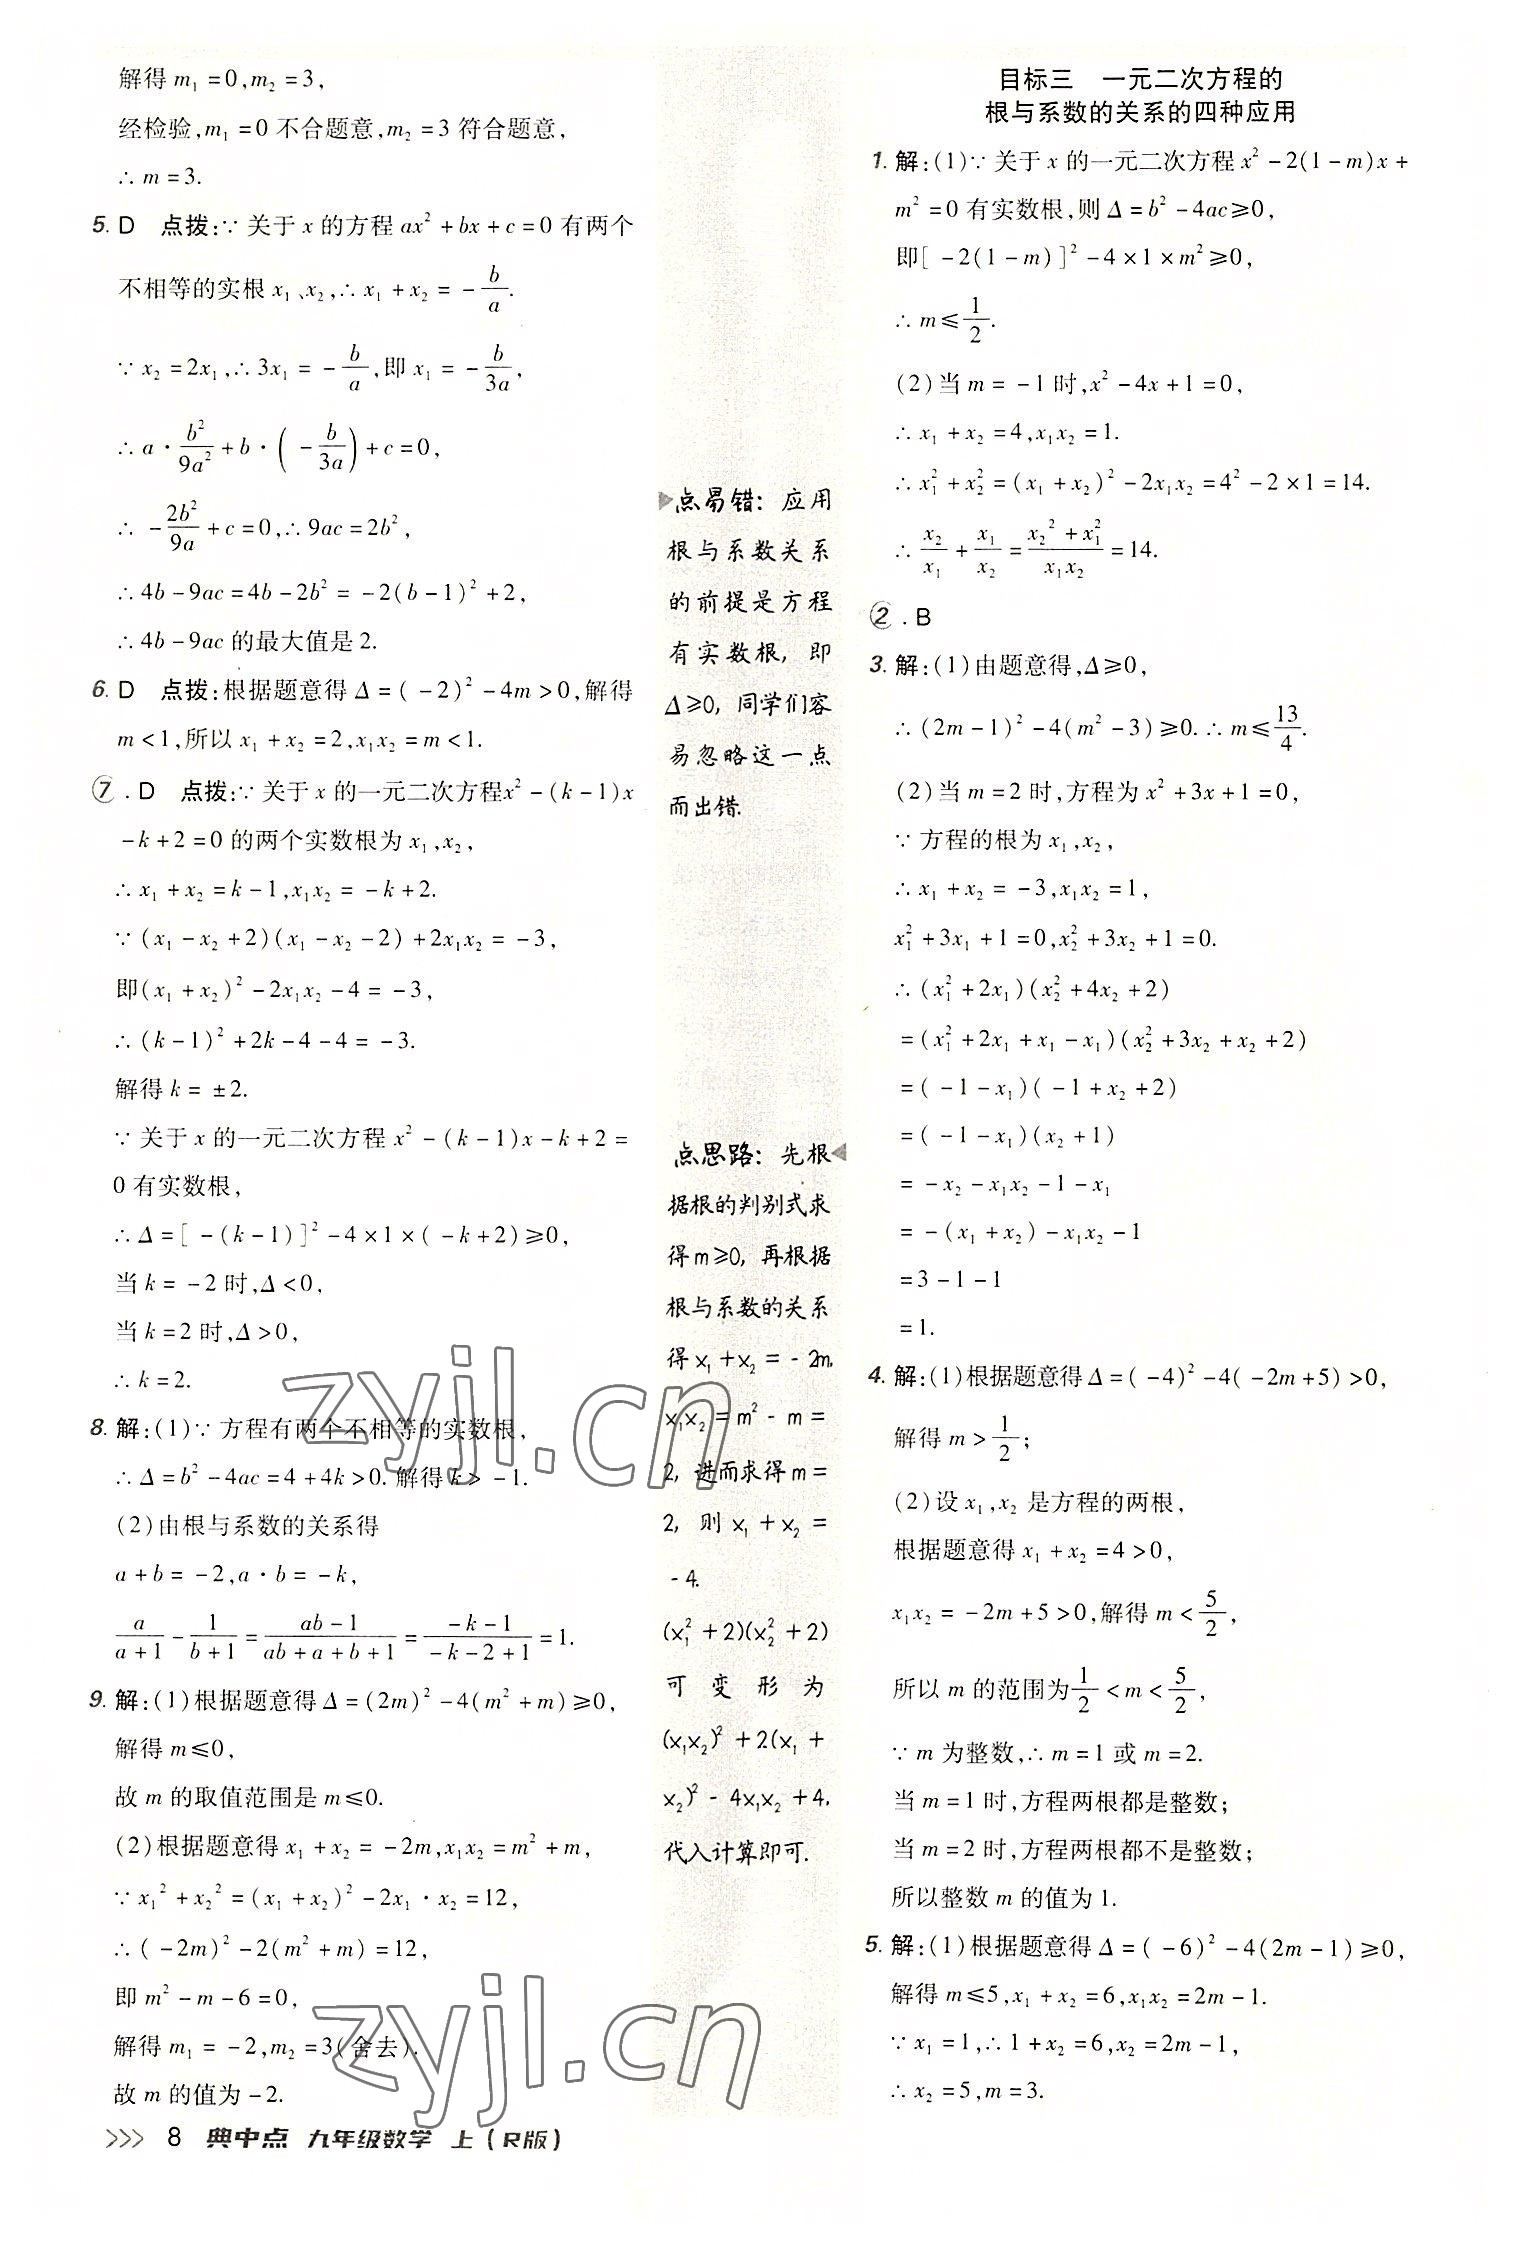 解得 m₁=0,m₂=3,
经检验,m₁=0 不合题意,m₂=3 符合题意,
∴ m=3.
5. D 点拨:∵ 关于 x 的方程 ax²+bx+c=0 有两个
不相等的实根 x₁、x₂,∴ x₁+x₂=-b/a.
∵ x₂=2x₁,∴ 3x₁=-b/a,即 x₁=-b/3a,
∴ a·b²/9a²+b·(-b/3a)+c=0,
∴ -2b²/9a+c=0,∴ 9ac=2b²,
∴ 4b-9ac=4b-2b²=-2(b-1)²+2,
∴ 4b-9ac 的最大值是 2.
6. D 点拨:根据题意得 Δ=(-2)²-4m>0,解得
m<1,所以 x₁+x₂=2,x₁x₂=m<1.
⑦. D 点拨:∵ 关于 x 的一元二次方程x²-(k-1)x
-k+2=0 的两个实数根为 x₁,x₂,
∴ x₁+x₂=k-1,x₁x₂=-k+2.
∵ (x₁-x₂+2)(x₁-x₂-2)+2x₁x₂=-3,
即(x₁+x₂)²-2x₁x₂-4=-3,
∴ (k-1)²+2k-4-4=-3.
解得 k=±2.
∵ 关于 x 的一元二次方程 x²-(k-1)x-k+2=
0 有实数根,
∴ Δ=[-(k-1)]²-4×1×(-k+2)≥0,
当 k=-2 时,Δ<0,
当 k=2 时,Δ>0,
∴ k=2.
8. 解:(1)∵ 方程有两个不相等的实数根,
∴ Δ=b²-4ac=4+4k>0.解得 k>-1.
(2)由根与系数的关系得
a+b=-2,a·b=-k,
a/(a+1)-1/(b+1)=(ab-1)/(ab+a+b+1)=(-k-1)/(-k-2+1)=1.
9. 解:(1)根据题意得 Δ=(2m)²-4(m²+m)≥0,
解得 m≤0,
故 m 的取值范围是 m≤0.
(2)根据题意得 x₁+x₂=-2m,x₁x₂=m²+m,
∵ x₁²+x₂²=(x₁+x₂)²-2x₁·x₂=12,
∴ (-2m)²-2(m²+m)=12,
即 m²-m-6=0,
解得 m₁=-2,m₂=3(舍去).
故 m 的值为-2.
点易错:应用
根与系数关系
的前提是方程
有实数根,即
Δ≥0,同学们容
易忽略这一点
而出错.
点思路:先根
据根的判别式求
得 m≥0,再根据
根与系数的关系
得 x₁+x₂=-2m,
x₁x₂=m²-m=
2,进而求得 m=
2,则 x₁+x₂=
-4.
(x₁²+2)(x₂²+2)
可变形为
(x₁x₂)²+2(x₁+
x₂)²-4x₁x₂+4,
代入计算即可.
目标三 一元二次方程的
根与系数的关系的四种应用
1. 解:(1)∵ 关于 x 的一元二次方程 x²-2(1-m)x+
m²=0 有实数根,则 Δ=b²-4ac≥0,
即[-2(1-m)]²-4×1×m²≥0,
∴ m≤1/2.
(2)当 m=-1 时,x²-4x+1=0,
∴ x₁+x₂=4,x₁x₂=1.
∴ x₁²+x₂²=(x₁+x₂)²-2x₁x₂=4²-2×1=14.
∴ x₂/x₁+x₁/x₂=(x₂²+x₁²)/x₁x₂=14.
②. B
3. 解:(1)由题意得,Δ≥0,
∴ (2m-1)²-4(m²-3)≥0.∴ m≤13/4.
(2)当 m=2 时,方程为 x²+3x+1=0,
∵ 方程的根为 x₁,x₂,
∴ x₁+x₂=-3,x₁x₂=1,
x₁²+3x₁+1=0,x₂²+3x₂+1=0.
∴ (x₁²+2x₁)(x₂²+4x₂+2)
=(x₁²+2x₁+x₁-x₁)(x₂²+3x₂+x₂+2)
=(-1-x₁)(-1+x₂+2)
=(-1-x₁)(x₂+1)
=-x₂-x₁x₂-1-x₁
=-(x₁+x₂)-x₁x₂-1
=3-1-1
=1.
4. 解:(1)根据题意得 Δ=(-4)²-4(-2m+5)>0,
解得 m>1/2;
(2)设 x₁,x₂ 是方程的两根,
根据题意得 x₁+x₂=4>0,
x₁x₂=-2m+5>0,解得 m<5/2,
所以 m 的范围为1/2<m<5/2,
∵ m 为整数,∴ m=1 或 m=2.
当 m=1 时,方程两根都是整数;
当 m=2 时,方程两根都不是整数;
所以整数 m 的值为 1.
5. 解:(1)根据题意得 Δ=(-6)²-4(2m-1)≥0,
解得 m≤5,x₁+x₂=6,x₁x₂=2m-1.
∵ x₁=1,∴ 1+x₂=6,x₂=2m-1,
∴ x₂=5,m=3.
zyjl.cn
zyjl.cn
>>> 8 典中点 九年级数学 上(R版)